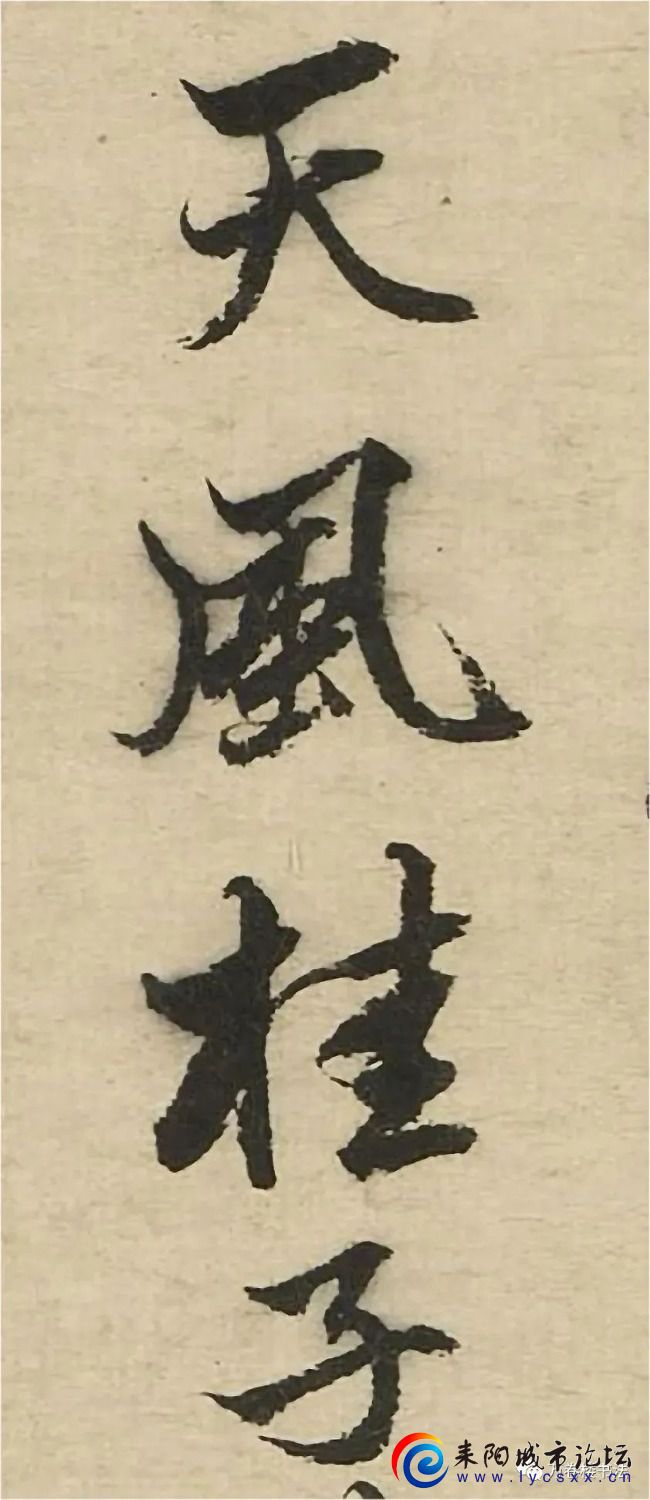 天風桂子
耒阳城市论坛
www.lycsxx.cn